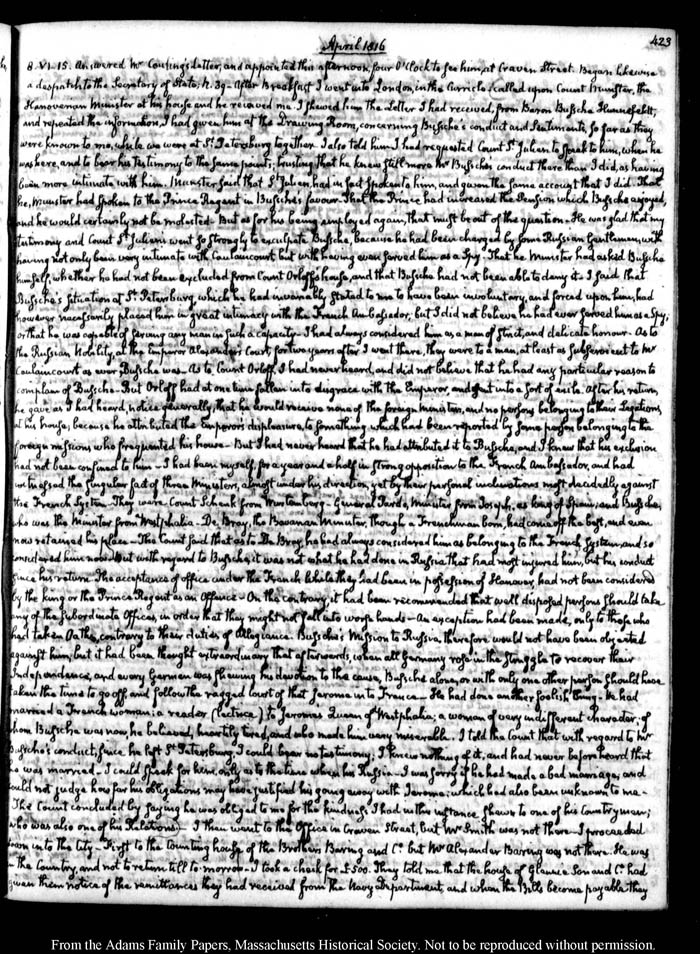 April 1816
423
8. VI. 15. Answered Mr Cousing's Letter, and appointed this afternoon, four O'Clock to see him, at Craven Street. Began likewise
a despatch to the Secretary of State, N. 39. After Breakfast I went into London, in the Curricle; called upon Count Munster, the
Hanoverian Minister at his house and he received me. I shewed him the Letter I had received, from Baron Bussche Hunnefeldt,
and repeated the information, I had given him at the Drawing Room, concerning Bussche's conduct and Sentiments, so far as they
were known to me, while we were at St. Petersburg together. I also told him I had requested Count St. Julien to speak to him, when he
was here, and to bear his testimony to the same points; trusting that he knew still more Mr Bussche's conduct there than I did, as having
been more intimate with him. Munster said that St. Julien, had in fact spoken to him, and given the same account that I did. That
he, Munster had spoken to the Prince Regent in Bussche's favour. That the Prince had increased the Pension which Bussche enjoyed,
and he would certainly not be molested. But as for his being employed again, that must be out of the question. He was glad that my
testimony and Count St. Julien's went so strongly to exculpate Bussche, because he had been charged by some Russian Gentlemen, with
having not only been very intimate with Caulaincourt but with having even served him as a Spy. That he Munster had asked Bussche
himself, whether he had not been excluded from Count Orloff's house, and that Bussche had not been able to deny it. I said that
Bussche's situation at St. Petersburg, which he had invariably stated to me to have been involuntary, and forced upon him, had
however necessarily placed him in great intimacy with the French Ambassador, but I did not believe he had ever served him as a Spy,
or that he was capable of serving any man in such a capacity. I had always considered him as a man of strict, and delicate honour. As to
the Russian Nobility, at the Emperor Alexander's Court, for two years after I went there, they were to a man, at least as subservient to Mr
Caulaincourt as ever Bussche was. As to Count Orloff, I had never heard, and did not believe that he had any particular reason to
complain of Bussche. But Orloff had at one time fallen into disgrace with the Emperor and sent into a sort of exile. After his return,
he gave as I had heard, notice generally, that he would receive none of the foreign ministers, and no persons belonging to their Legations,
at his house, because he attributed the Emperor's displeasure, to something which had been reported by some person belonging to the
foreign missions, who frequented his house. But I had never heard that he had attributed it to Bussche, and I knew that his exclusion
had not been confined to him. I had been myself, for a year and a half in strong opposition to the French Ambassador, and had
witnessed the singular fact of three Ministers, almost under his direction, yet by their personal inclinations most decidedly against
the French System. They were Count Schenk from Wurtemberg. General Pardo, Minister from Joseph, as king of Spain; and Bussche,
who was the Minister from Westphalia. De Bray, the Bavarian Minister, though a Frenchman born, had come off the best, and even
now retained his place. The Count said that as to De Bray, he had always considered him as belonging to the French System, and so
considered him now. But with regard to Bussche, it was not what he had done in Russia that had most injured him, but his conduct
since his return. The acceptance of office under the French while they had been in possession of Hanover, had not been considered
by the king or the Prince Regent as an Offence. On the contrary, it had been recommended that well disposed persons should take
any of the subordinate Offices, in order that they might not fall into worse hands. An exception had been made, only to those who
had taken Oaths, contrary to their duties of Allegiance. Bussche's Mission to Russia, therefore would not have been objected
against him; but it had been thought extraordinary that afterwards, when all Germany rose in the Struggle to recover their
Independence, and every German was shewing his devotion to the cause, Bussche alone, or with only one other person should have
taken the time to go off and follow the ragged court of that Jerome into France. He had done another foolish thing. He had
married a French woman; a reader (lectrice) to Jerome's Queen of Westphalia; a woman of very indifferent character; of
whom Bussche was now, he believed, heartily tired, and who made him very miserable. I told the Count that with regard to Mr
Bussche's conduct, since he left St. Petersburg, I could bear no testimony; I knew nothing of it, and had never before heard that
he was married. I could speak for him, only as to the time when his Russia. I was sorry if he had made a bad marriage, and
could not judge how far his obligations may have justified his going away with Jerome; which had also been unknown to me.
The Count concluded by saying he was obliged to me for the kindness I had in this instance shewn to one of his Countrymen;
who was also one of his Relations. I then went to the Office in Craven Street, but Mr Smith was not there. I proceeded
soon into the City. First to the Counting house of the Brothers Baring and Co. but Mr Alexander Baring was not there. He was
in the Country, and not to return till to-morrow. I took a check for £500. They told me that the house of Glennie Son and Co. had
given them notice of the remittances they had received from the Navy Department, and when the Bills become payable they
From the Adams Family Papers, Massachusetts Historical Society. Not to be reproduced without permission.